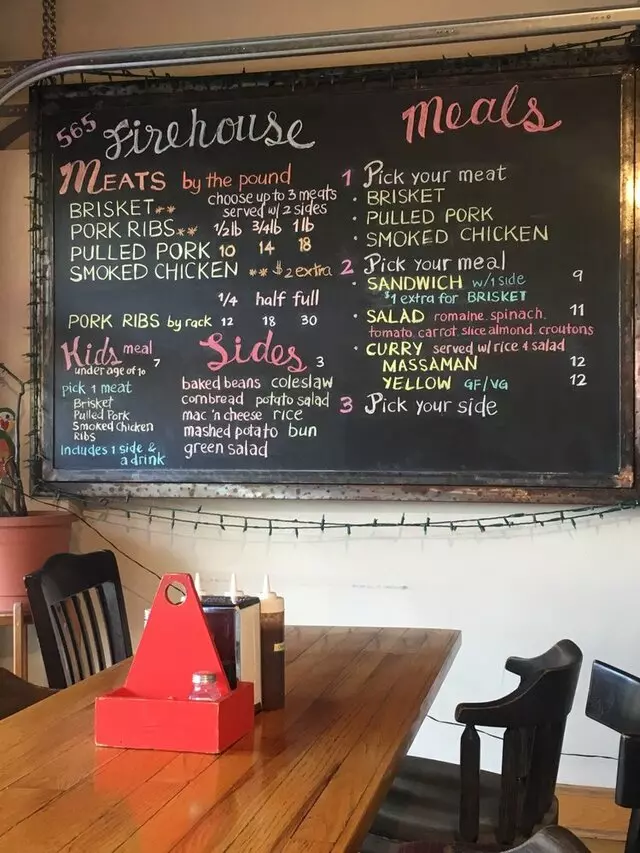 565 Firehouse
MEATS by the pound
choose up to 3 meats
BRISKET** served w/ 2 sides
PORK RIBS** 1/2lb 3/4lb 1lb
PULLED PORK 10 14 18
SMOKED CHICKEN ** $2 extra
1/4 half full
PORK RIBS by rack 12 18 30
Kids meal 7
under age of 10
pick 1 meat
Brisket
Pulled Pork
Smoked Chicken
Ribs
Includes 1 side &
a drink
Sides 3
baked beans coleslaw
cornbread potato salad
mac 'n cheese rice
mashed potato bun
green salad
Meals
1 Pick your meat
· BRISKET
· PULLED PORK
· SMOKED CHICKEN
2 Pick your meal
· SANDWICH w/1 side 9
$1 extra for BRISKET
· SALAD romaine. spinach. 11
tomato. carrot. slice almond. croutons
· CURRY served w/ rice & salad
MASSAMAN 12
YELLOW GF/VG 12
3 Pick your side